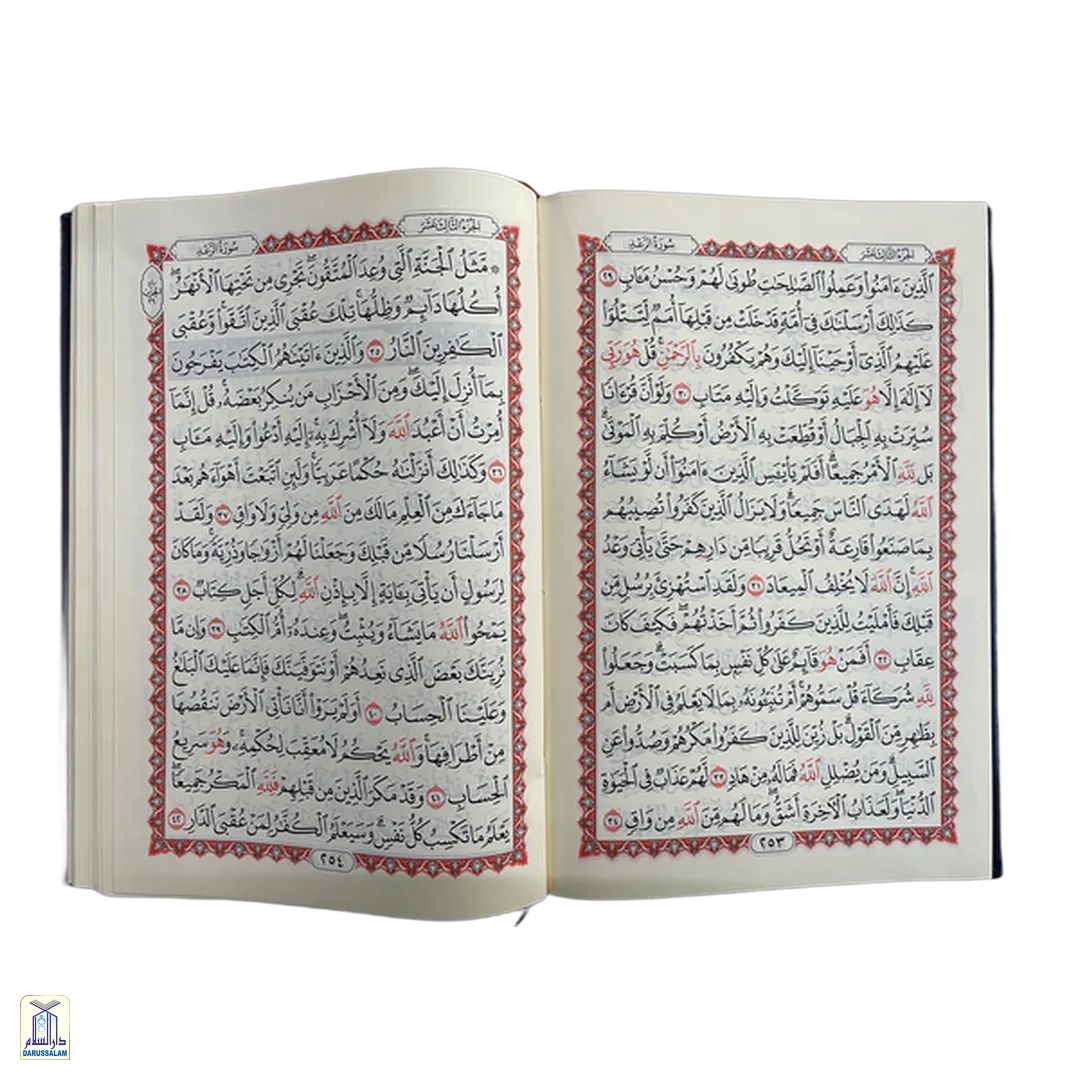 الجزء الثالث عشر
سورة الرعد
الَّذِينَ ءَامَنُوا وَعَمِلُوا الصَّالِحَاتِ طُوبَى لَهُمْ وَحُسْنُ مَـَٔابٍ ٢٩
كَذَٰلِكَ أَرْسَلْنَاكَ فِي أُمَّةٍ قَدْ خَلَتْ مِن قَبْلِهَا أُمَمٌ لِّتَتْلُوَا
عَلَيْهِمُ الَّذِي أَوْحَيْنَا إِلَيْكَ وَهُمْ يَكْفُرُونَ بِالرَّحْمَٰنِ قُلْ هُوَ رَبِّي
لَا إِلَٰهَ إِلَّا هُوَ عَلَيْهِ تَوَكَّلْتُ وَإِلَيْهِ مَتَابِ ٣٠ وَلَوْ أَنَّ قُرْءَانًا
سُيِّرَتْ بِهِ الْجِبَالُ أَوْ قُطِّعَتْ بِهِ الْأَرْضُ أَوْ كُلِّمَ بِهِ الْمَوْتَىٰ
بَل لِّلَّهِ الْأَمْرُ جَمِيعًا أَفَلَمْ يَاْيْـَٔسِ الَّذِينَ ءَامَنُوا أَن لَّوْ يَشَاءُ
اللَّهُ لَهَدَى النَّاسَ جَمِيعًا وَلَا يَزَالُ الَّذِينَ كَفَرُوا تُصِيبُهُم
بِمَا صَنَعُوا قَارِعَةٌ أَوْ تَحُلُّ قَرِيبًا مِّن دَارِهِمْ حَتَّىٰ يَأْتِيَ وَعْدُ
اللَّهِ إِنَّ اللَّهَ لَا يُخْلِفُ الْمِيعَادَ ٣١ وَلَقَدِ اسْتُهْزِئَ بِرُسُلٍ مِّن
قَبْلِكَ فَأَمْلَيْتُ لِلَّذِينَ كَفَرُوا ثُمَّ أَخَذْتُهُمْ فَكَيْفَ كَانَ
عِقَابِ ٣٢ أَفَمَنْ هُوَ قَائِمٌ عَلَىٰ كُلِّ نَفْسٍ بِمَا كَسَبَتْ وَجَعَلُوا
لِلَّهِ شُرَكَاءَ قُلْ سَمُّوهُمْ أَمْ تُنَبِّـُٔونَهُ بِمَا لَا يَعْلَمُ فِي الْأَرْضِ أَم
بِظَاهِرٍ مِّنَ الْقَوْلِ بَلْ زُيِّنَ لِلَّذِينَ كَفَرُوا مَكْرُهُمْ وَصُدُّوا عَنِ
السَّبِيلِ وَمَن يُضْلِلِ اللَّهُ فَمَا لَهُ مِنْ هَادٍ ٣٣ لَّهُمْ عَذَابٌ فِي الْحَيَوٰةِ
الدُّنْيَا وَلَعَذَابُ الْآخِرَةِ أَشَقُّ وَمَا لَهُم مِّنَ اللَّهِ مِن وَاقٍ ٣٤
٢٥٣
الجزء الثالث عشر
سورة الرعد
۞ مَّثَلُ الْجَنَّةِ الَّتِي وُعِدَ الْمُتَّقُونَ تَجْرِي مِن تَحْتِهَا الْأَنْهَارُ
أُكُلُهَا دَائِمٌ وَظِلُّهَا تِلْكَ عُقْبَى الَّذِينَ اتَّقَوا وَّعُقْبَى
الْكَافِرِينَ النَّارُ ٣٥ وَالَّذِينَ ءَاتَيْنَاهُمُ الْكِتَابَ يَفْرَحُونَ
بِمَا أُنزِلَ إِلَيْكَ وَمِنَ الْأَحْزَابِ مَن يُنكِرُ بَعْضَهُ قُلْ إِنَّمَا
أُمِرْتُ أَنْ أَعْبُدَ اللَّهَ وَلَا أُشْرِكَ بِهِ إِلَيْهِ أَدْعُوا وَإِلَيْهِ مَـَٔابِ
٣٦ وَكَذَٰلِكَ أَنزَلْنَاهُ حُكْمًا عَرَبِيًّا وَلَئِنِ اتَّبَعْتَ أَهْوَاءَهُم بَعْدَ
مَا جَاءَكَ مِنَ الْعِلْمِ مَا لَكَ مِنَ اللَّهِ مِن وَلِيٍّ وَلَا وَاقٍ ٣٧ وَلَقَدْ
أَرْسَلْنَا رُسُلًا مِّن قَبْلِكَ وَجَعَلْنَا لَهُمْ أَزْوَاجًا وَذُرِّيَّةً وَمَا كَانَ
لِرَسُولٍ أَن يَأْتِيَ بِـَٔايَةٍ إِلَّا بِإِذْنِ اللَّهِ لِكُلِّ أَجَلٍ كِتَابٌ ٣٨
يَمْحُوا اللَّهُ مَا يَشَاءُ وَيُثْبِتُ وَعِندَهُ أُمُّ الْكِتَابِ ٣٩ وَإِن مَّا
نُرِيَنَّكَ بَعْضَ الَّذِي نَعِدُهُمْ أَوْ نَتَوَفَّيَنَّكَ فَإِنَّمَا عَلَيْكَ الْبَلَاغُ
وَعَلَيْنَا الْحِسَابُ ٤٠ أَوَلَمْ يَرَوْا أَنَّا نَأْتِي الْأَرْضَ نَنقُصُهَا
مِنْ أَطْرَافِهَا وَاللَّهُ يَحْكُمُ لَا مُعَقِّبَ لِحُكْمِهِ وَهُوَ سَرِيعُ
الْحِسَابِ ٤١ وَقَدْ مَكَرَ الَّذِينَ مِن قَبْلِهِمْ فَلِلَّهِ الْمَكْرُ جَمِيعًا
يَعْلَمُ مَا تَكْسِبُ كُلُّ نَفْسٍ وَسَيَعْلَمُ الْكُفَّارُ لِمَنْ عُقْبَى الدَّارِ ٤٢
٢٥٤
دار السلام
DARUSSALAM